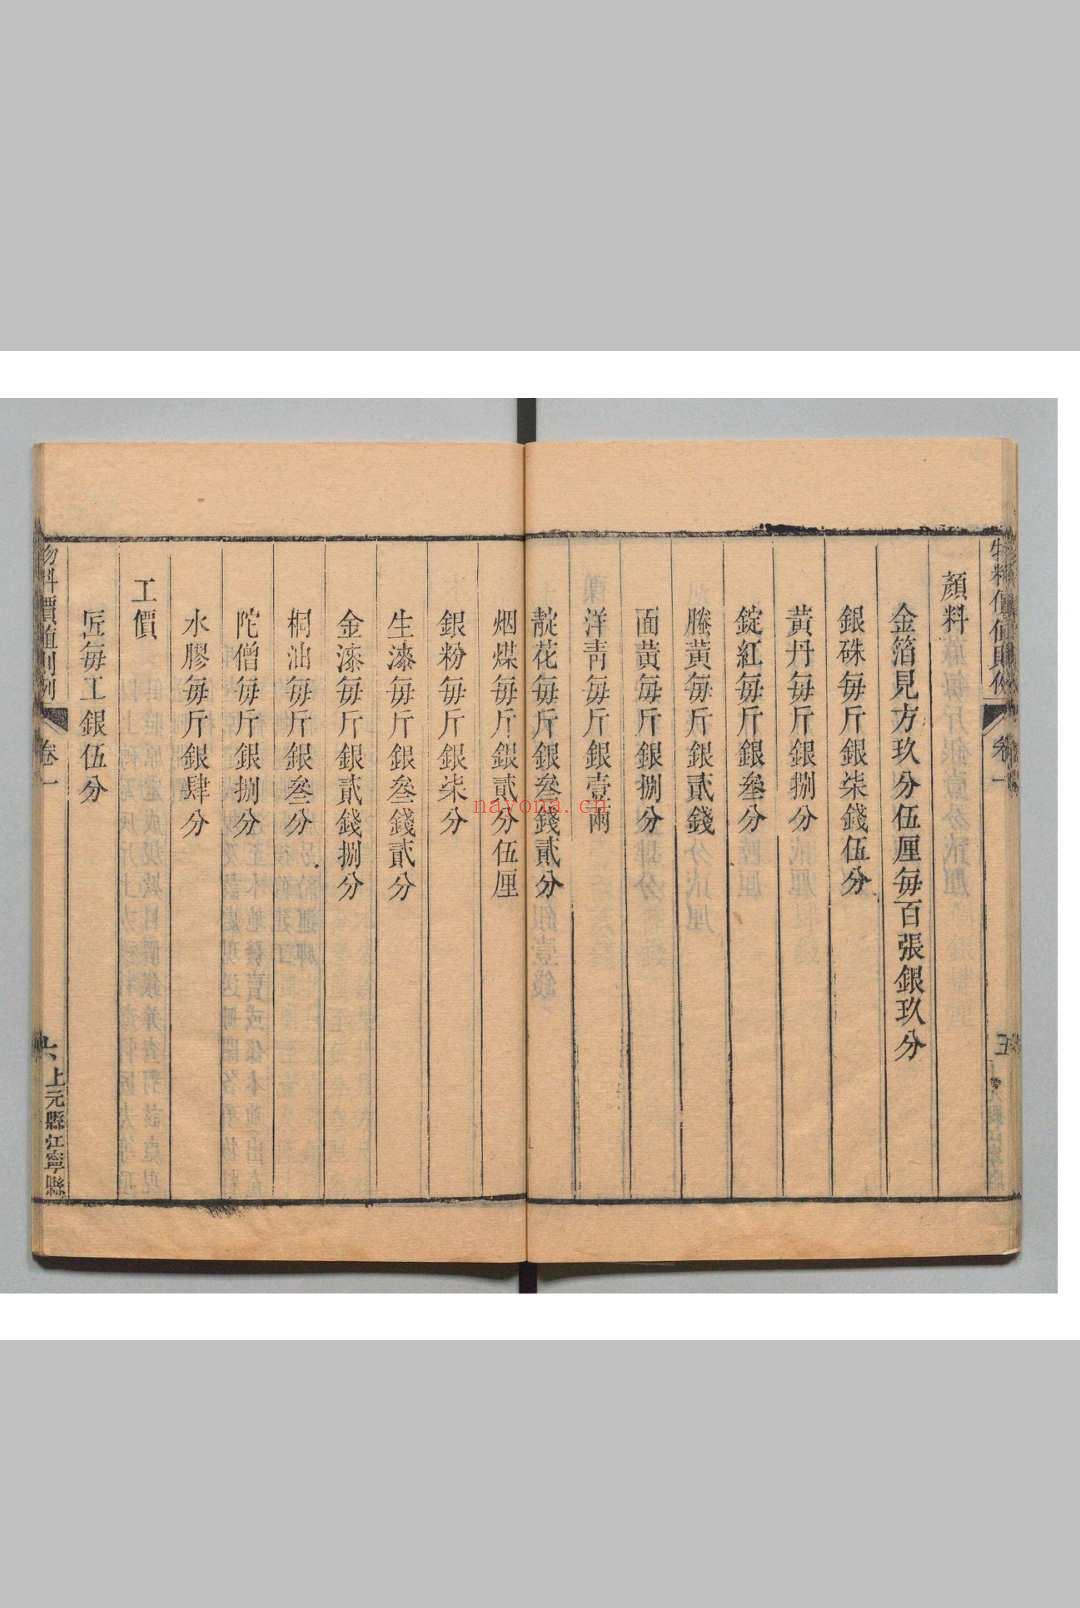 顏料
金箔見方玖分伍厘每百張銀玖分
銀硃每斤銀柒錢伍分
黃丹每斤銀捌分
錠紅每斤銀叄分
籐黃每斤銀貳錢
面黃每斤銀捌分
洋靑每斤銀壹兩
靛花每斤銀叄錢貳分
烟煤每斤銀貳分伍厘
銀粉每斤銀柒分
生漆每斤銀叄錢貳分
金漆每斤銀貳錢捌分
桐油每斤銀叄分
陀僧每斤銀捌分
水膠每斤銀肆分
工價
匠每工銀伍分
物料價值則例
卷一
上元縣江寧縣
nayona.cn